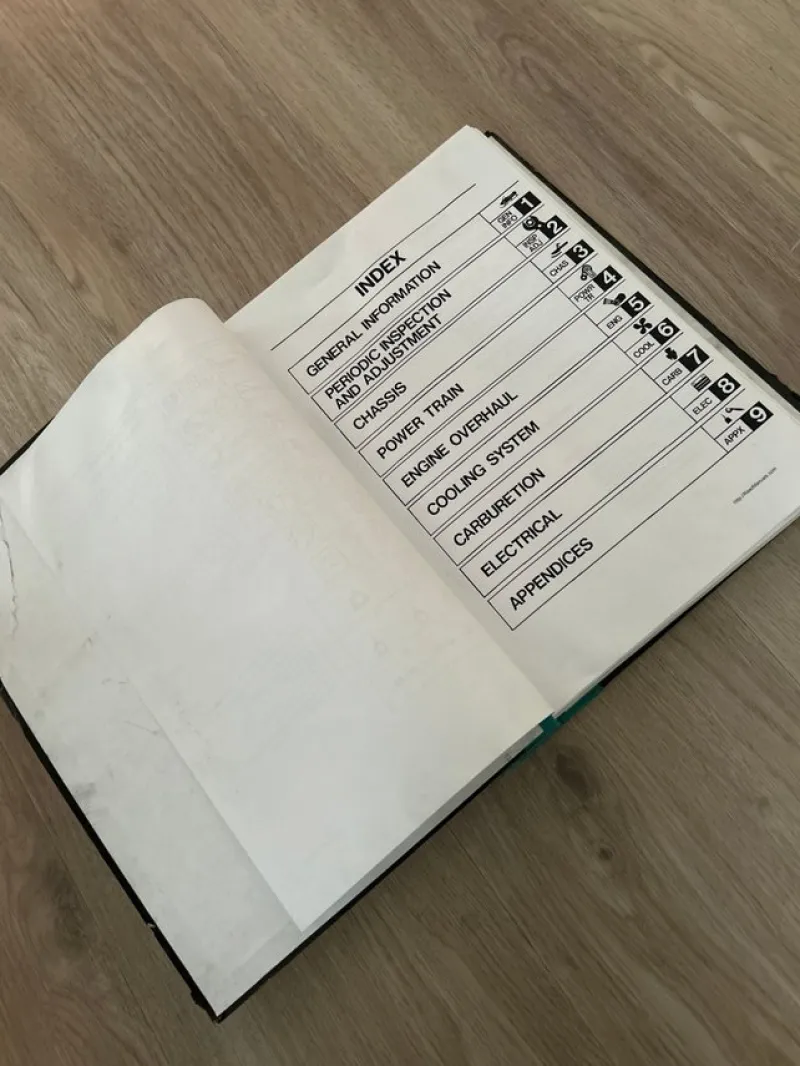 INDEX
GENERAL INFORMATION
GEN INFO
1
PERIODIC INSPECTION
AND ADJUSTMENT
INSP ADJ
2
CHASSIS
CHAS
3
POWER TRAIN
POWR TR
4
ENGINE OVERHAUL
ENG
5
COOLING SYSTEM
COOL
6
CARBURETION
CARB
7
ELECTRICAL
ELEC
8
APPENDICES
APPX
9